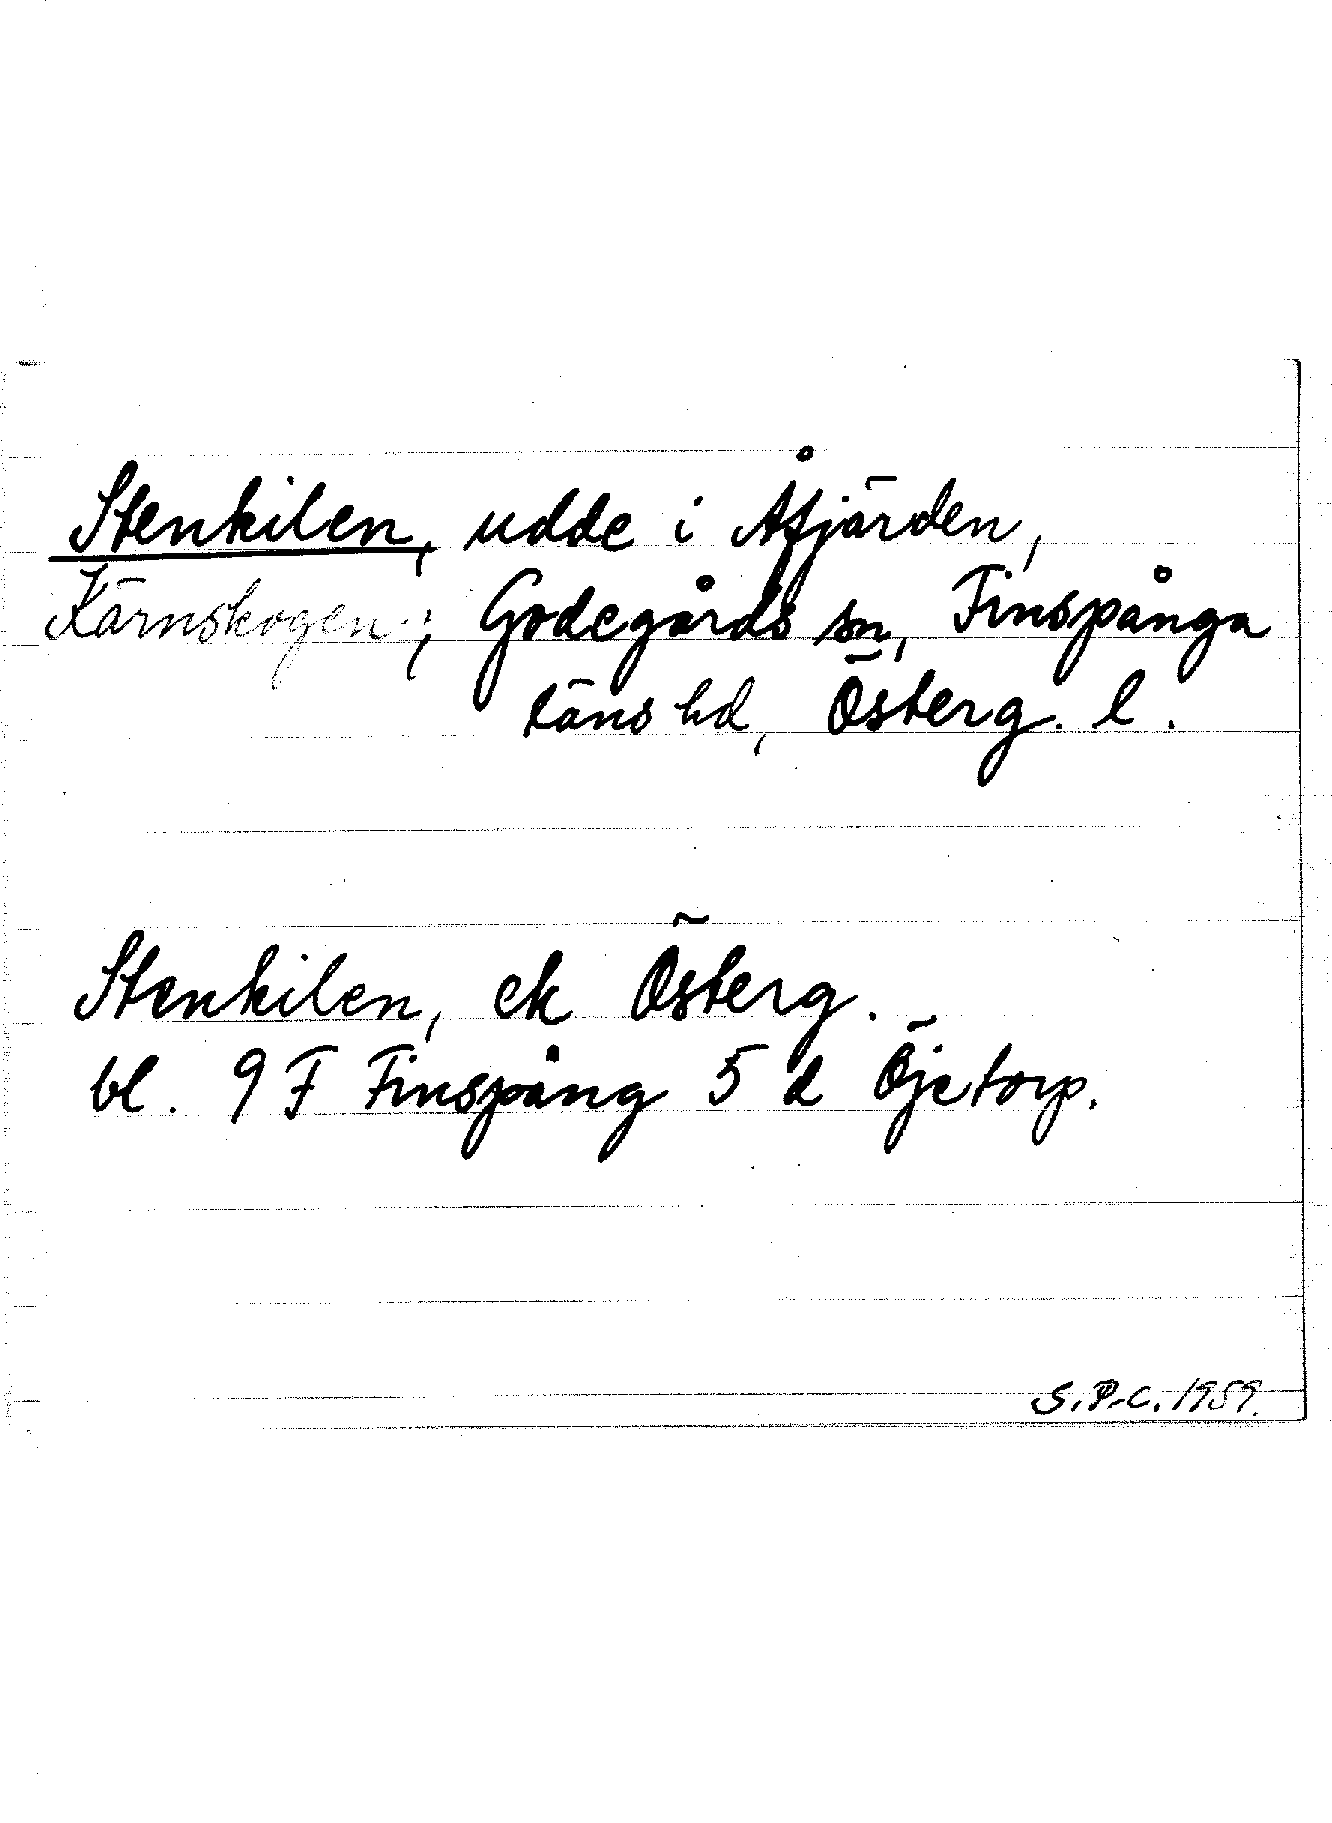 Stenkilen, udde i Åfjärden,
Kärnskogen; Godegårds sn, Finspånga
läns hd, Österg. l.
Stenkilen, ek Österg.
bl. 9 F Finspång 5 d Öjetorp.
S.P.C. 1959.